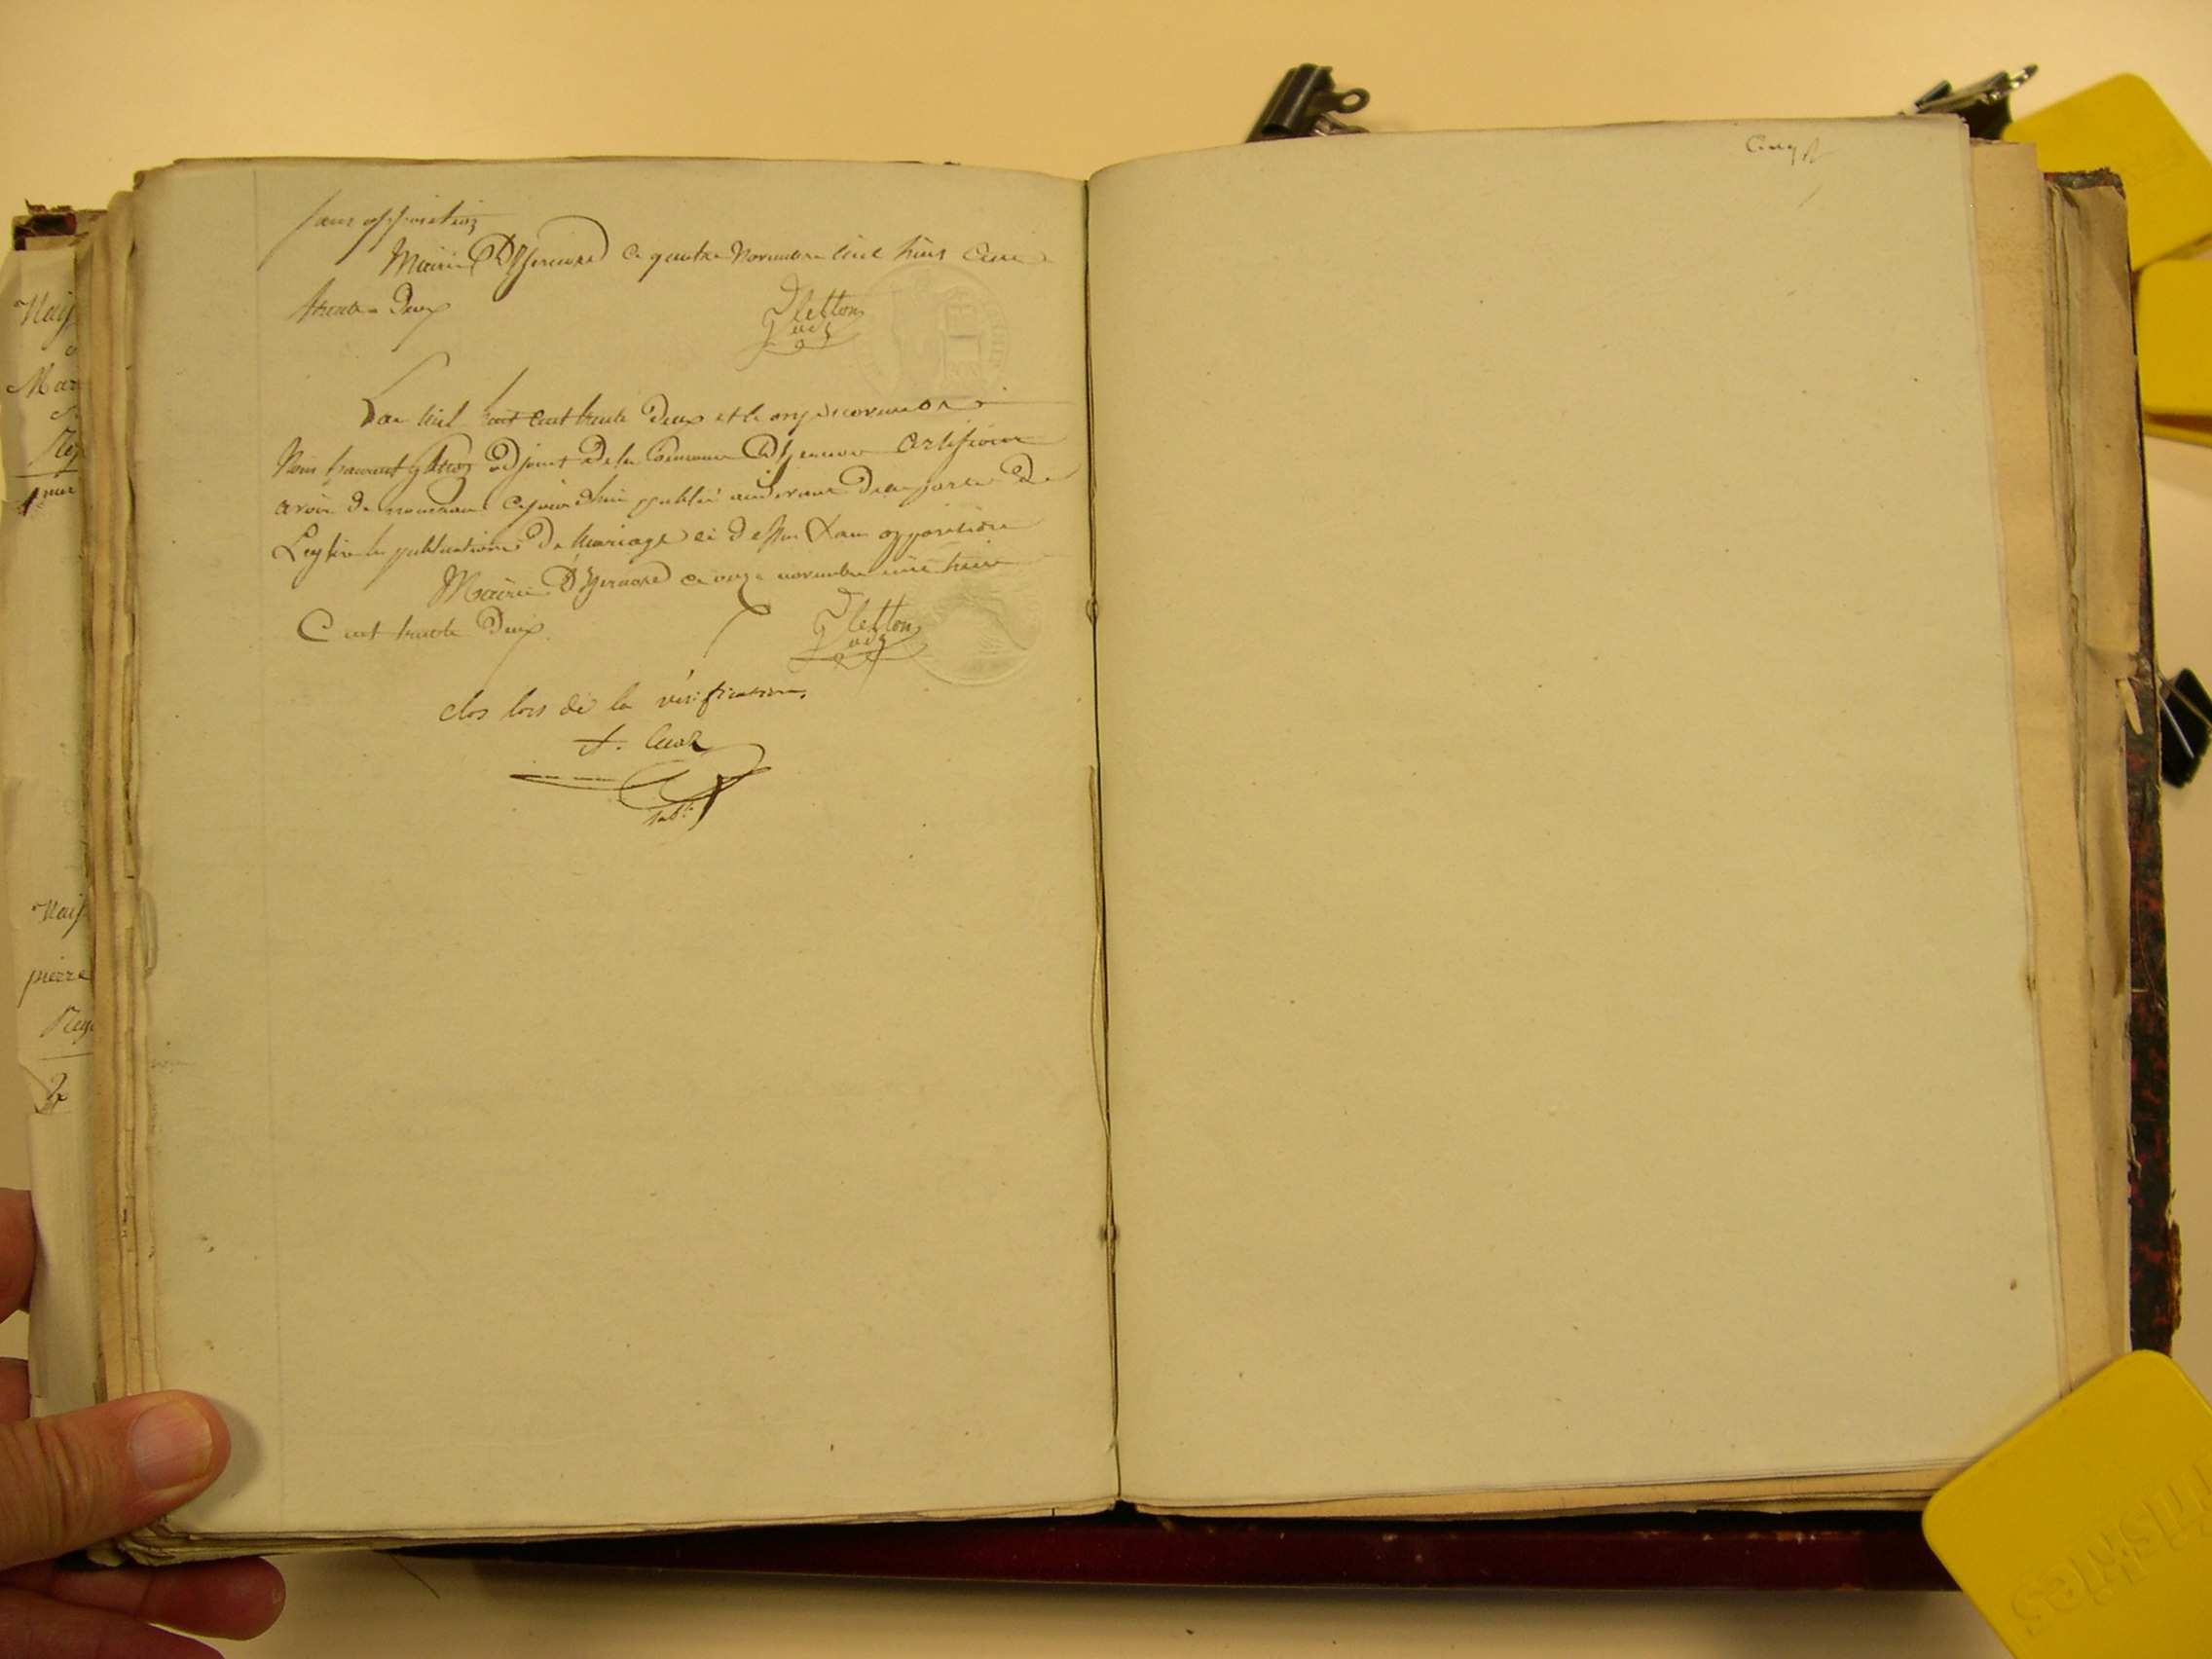 Sans opposition
Mairie D'Yserone ce quatre Novembre mil huit Cent
trente Deux
Dletton
adj
L'an mil huit cent trente Deux et le onze novembre
Nous adjoint de la Commune D' Certifions
avoir de nouveau cejourdhui publié audevant De la porte De
L'eglise les publications De Mariage ci Dessus Sans opposition
Mairie D' ce onze novembre mil huit
Cent trente Deux
Dletton
adj
clos lors de la vérification,
subst.
Naiss
Mar
1
Naiss
pierre
2
Cinq